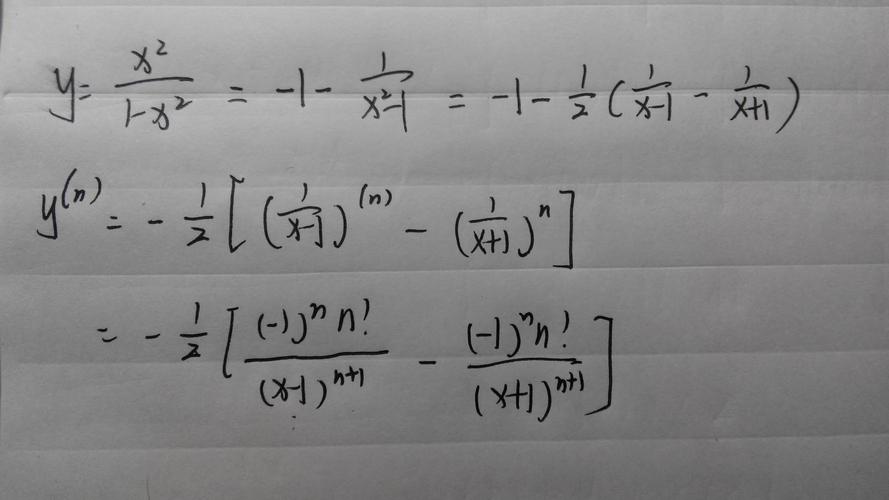 y = x²/(1-x²) = -1 - 1/(x²-1) = -1 - 1/2 (1/(x-1) - 1/(x+1))
y⁽ⁿ⁾ = - 1/2 [ (1/(x-1))⁽ⁿ⁾ - (1/(x+1))ⁿ ]
= - 1/2 [ (-1)ⁿ n! / (x-1)ⁿ⁺¹ - (-1)ⁿ n! / (x+1)ⁿ⁺¹ ]